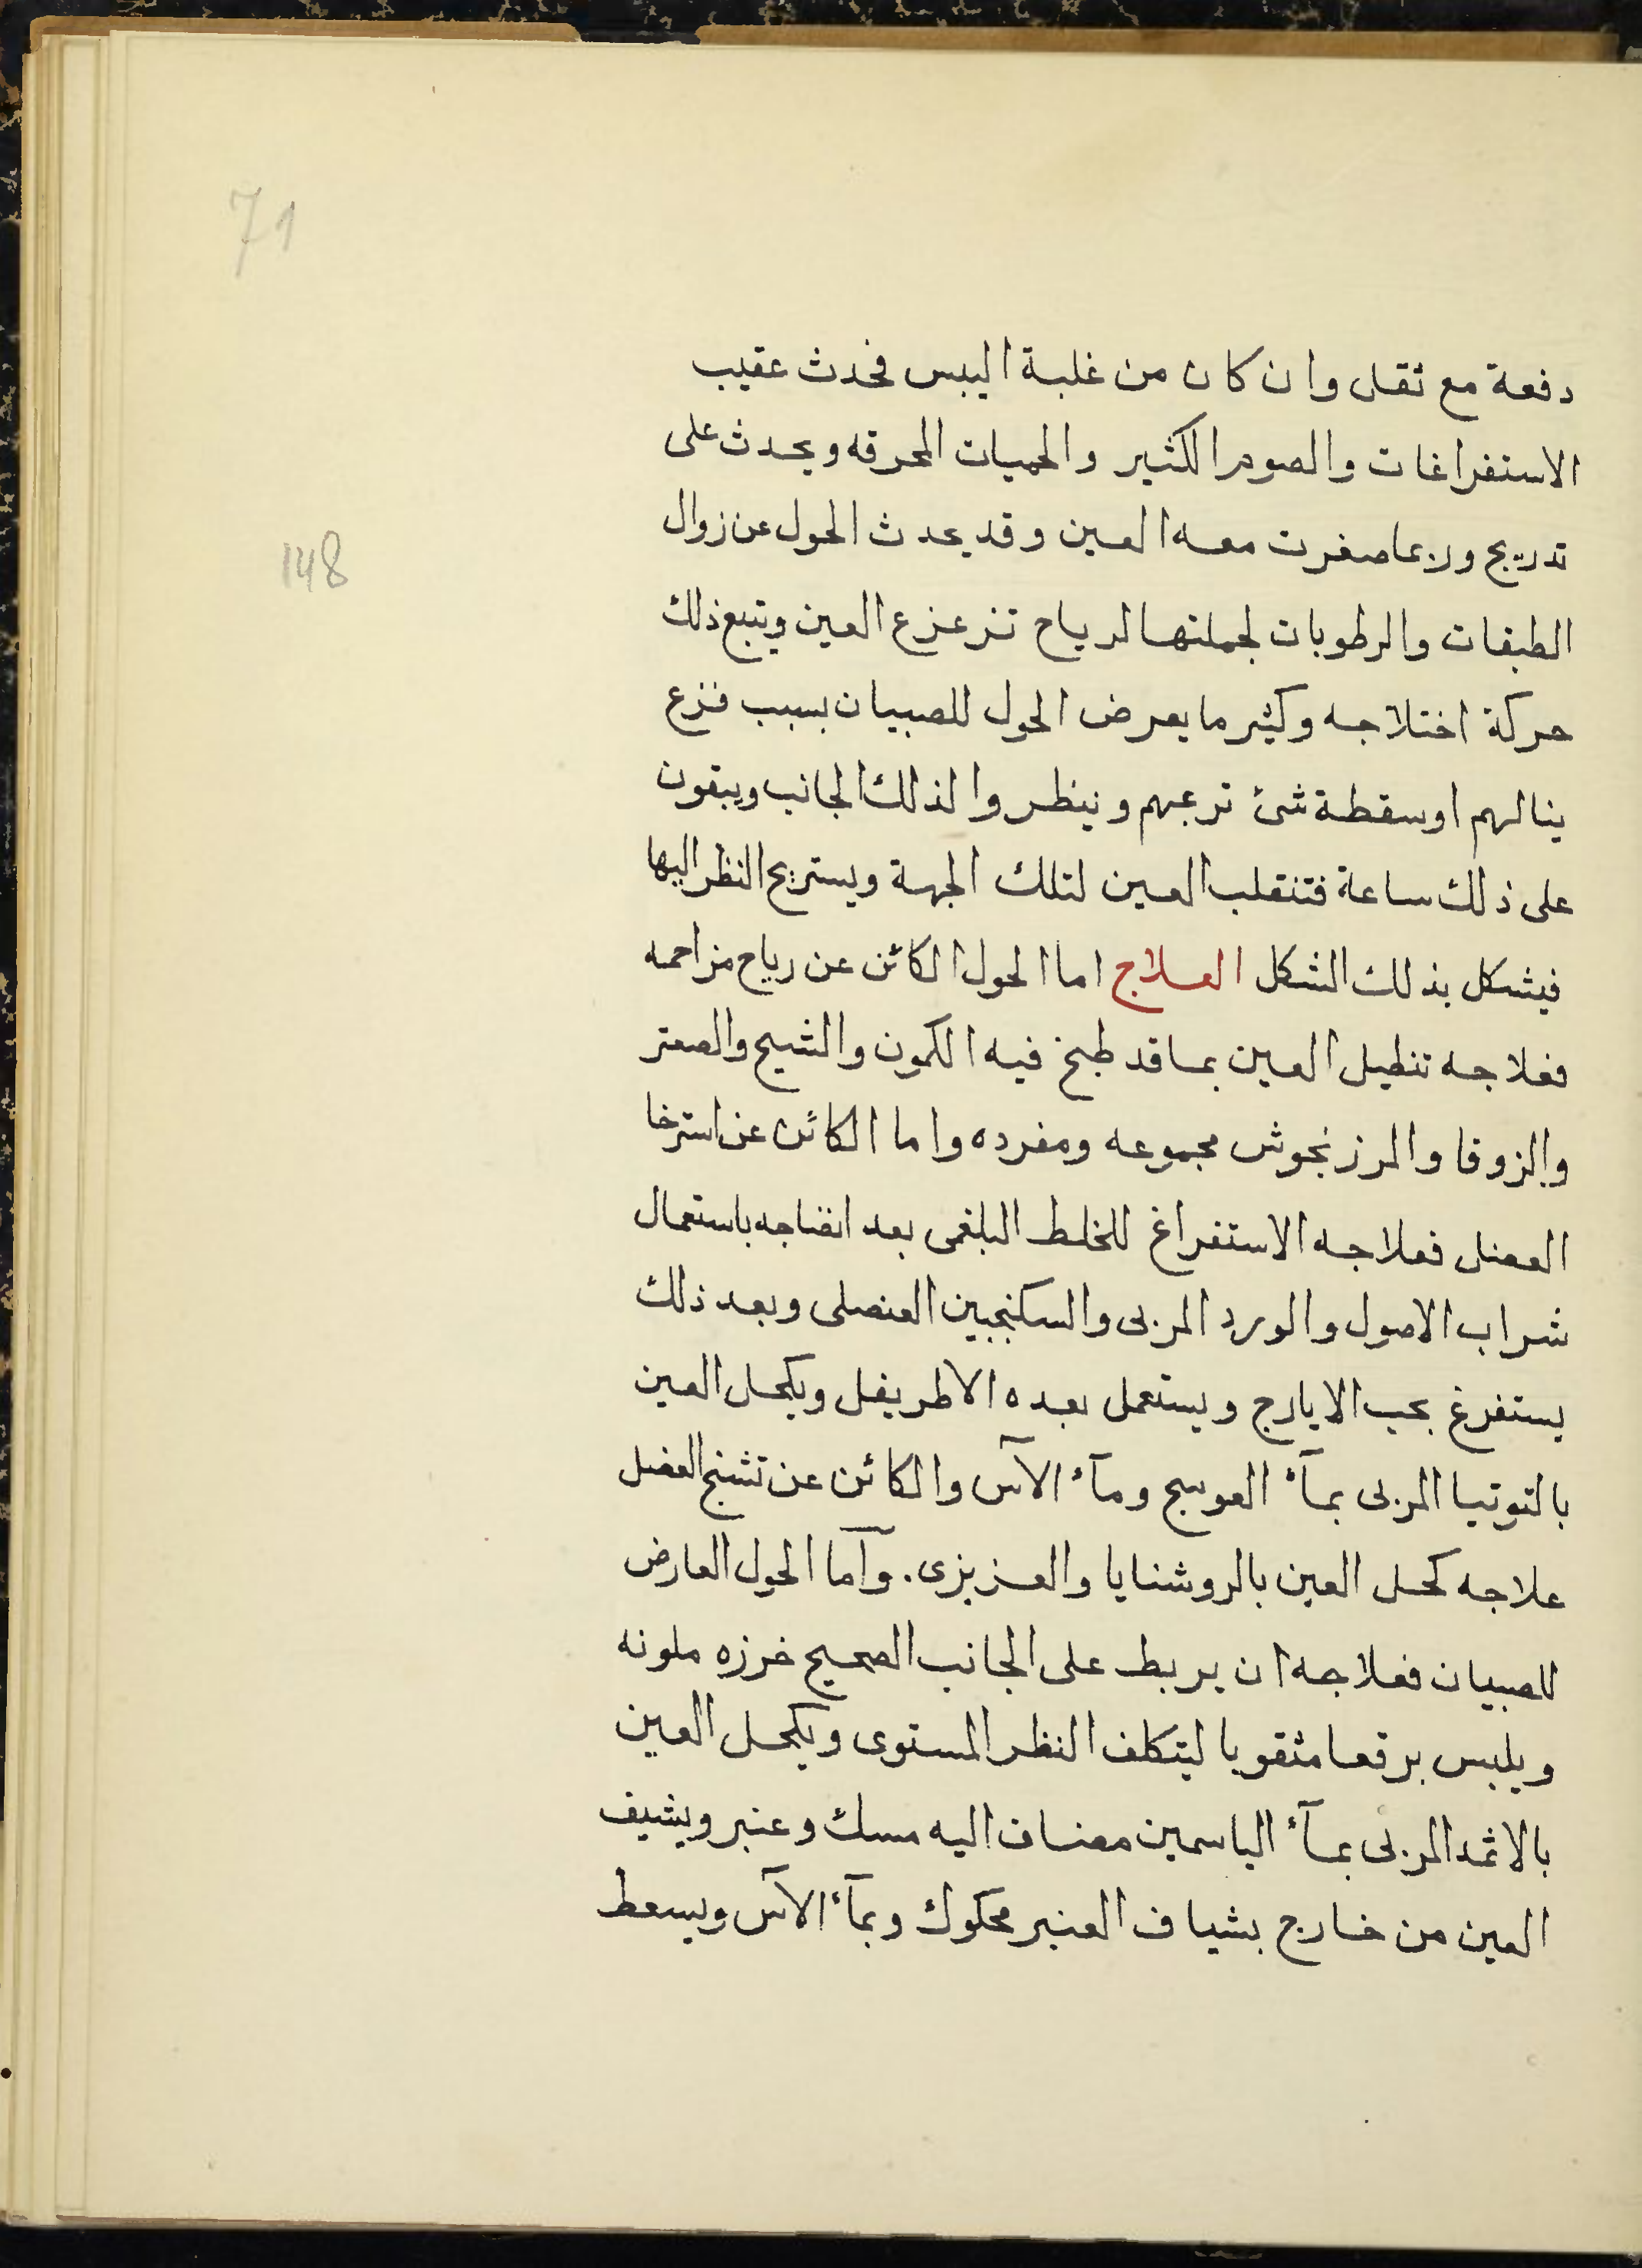 71
دفعة مع ثقل وان كان من غلبة اليبس فحدث عقيب
الاستفراغات والصوم الكثير والحميات المحرقه ويحدث على
تدريج وربما صغرت معه العين وقد يحدث الحول عن زوال
148
الطبقات والرطوبات لجملتها لرياح تزعزع العين ويتبع ذلك
حركة اختلاجه وكثير ما يعرض الحول للصبيان بسبب فزع
ينالهم او سقطة شئ ترعبهم وينظروا لذلك الجانب ويبقون
على ذلك ساعة فتنقلب العين لتلك الجهة ويستريح النظر اليها
فيشكل بذلك الشكل العلاج اما الحول الكائن عن رياح مزاحمه
فعلاجه تنطيل العين بما قد طبخ فيه الكمون والشيح والصعتر
والزوفا والمرزنجوش مجموعه ومفرده واما الكائن عن استرخا
العضل فعلاجه الاستفراغ للخلط البلغمى بعد انضاجه باستعمال
شراب الاصول والورد المربى والسكنجبين العنصلى وبعد ذلك
يستفرغ بحب الايارج ويستعمل بعده الاطريفل ويكحل العين
بالتوتيا المربى بمآء العوسج ومآء الآس والكائن عن تشنج العضل
علاجه كحل العين بالروشنايا والعزيزى. وآما الحول العارض
للصبيان فعلاجه ان يربط على الجانب الصحيح خرزه ملونه
ويلبس برقعا مثقوبا ليتكلف النظر المستوى ويكحل العين
بالاثمد المربى بمآء الياسمين مضاف اليه مسك وعنبر ويشيف
العين من خارج بشياف العنبر محكوك وبمآء الآس ويسعط